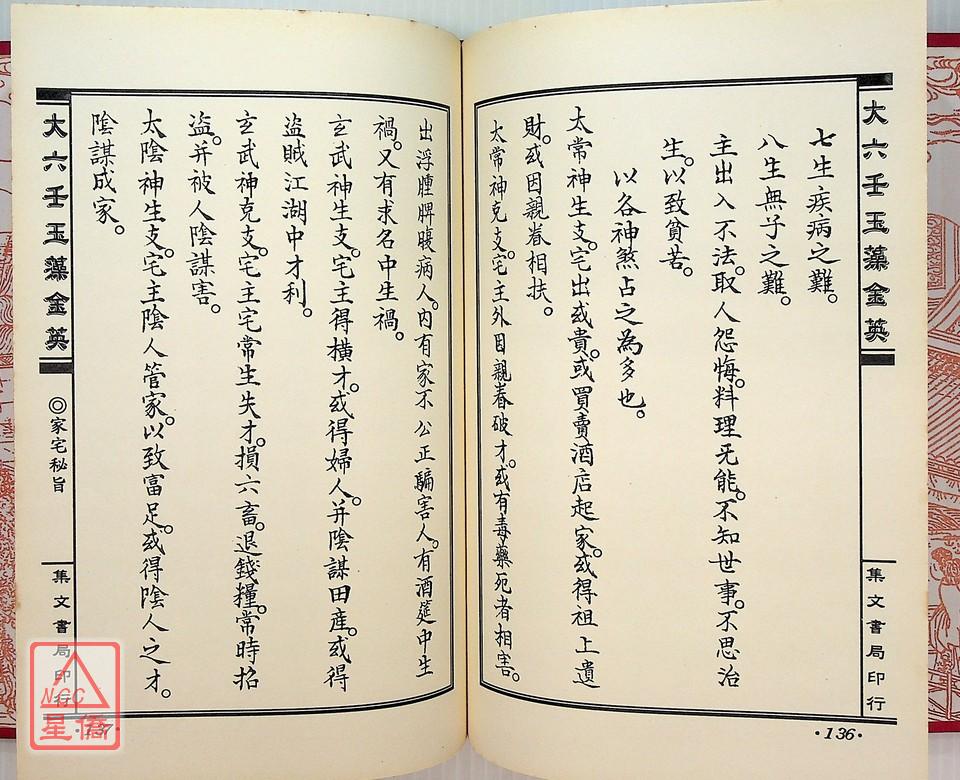 大六壬玉藻金英
七生疾病之難。
八生無子之難。
主出入不法。取人怨悔。料理无能。不知世事。不思治
生。以致貧苦。
以各神煞占之為多也。
太常神生支。宅出或貴。或買賣酒店起家。或得祖上遺
財。或因親眷相扶。
太常神克支。宅主外因親眷破才。或有毒藥死者相害。
集文書局印行
·136·
出浮腫脾                        病人。內有家不公正騙害人。有酒筵中生
禍。又有求名中生禍。
玄武神生支。宅主得橫才。或得婦人。并陰謀田產。或得
盜賊江湖中才利。
玄武神克支。宅主宅常生失才。損六畜。退錢糧。常時招
盜。并被人陰謀害。
太陰神生支。宅主陰人管家。以致富足。或得陰人之才。
陰謀成家。
大六壬玉藻金英
◎家宅秘旨
集文書局印行
·137·
NCC
星僑